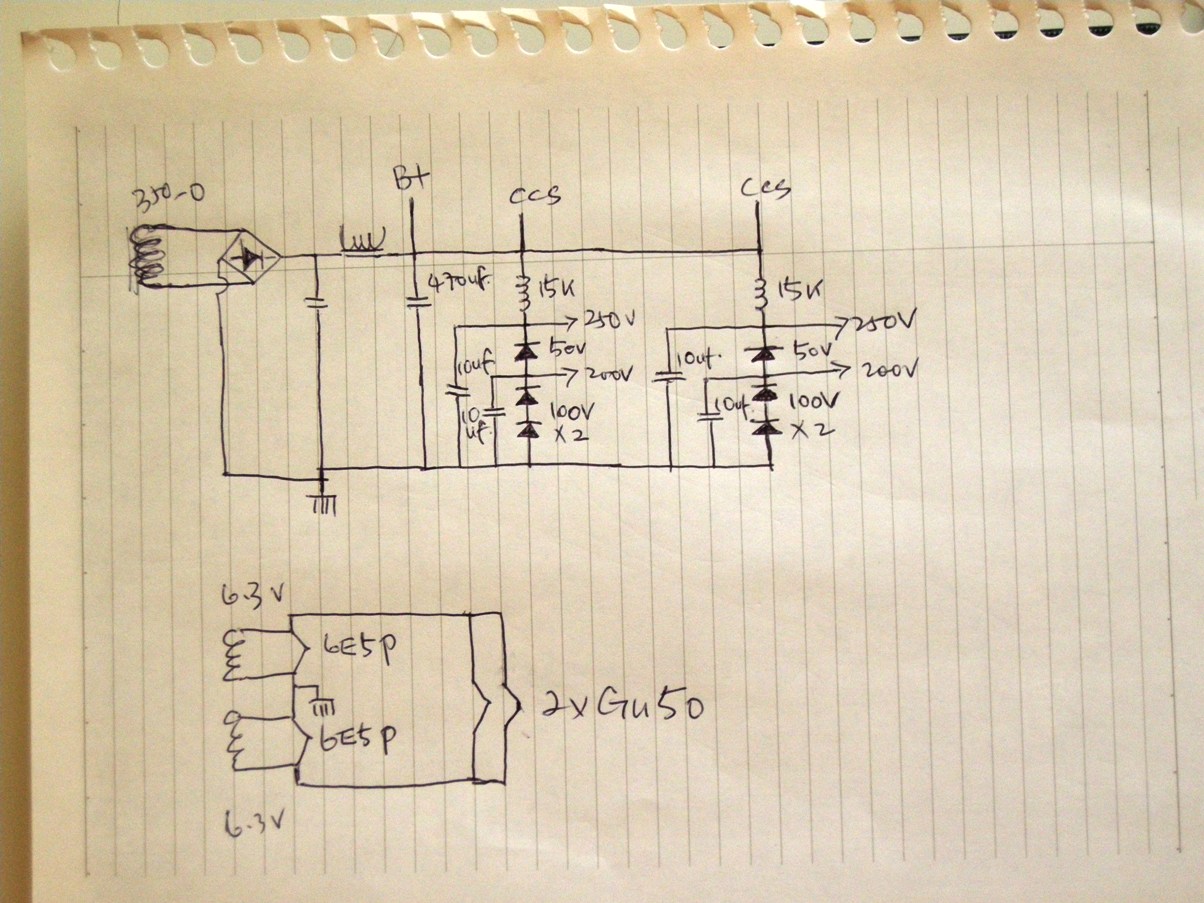 350-0
B+
CCS
CCS
470uf.
15K
15K
250V
250V
10uf
50V
10uf.
50V
200V
200V
10
uf.
100V
X2
10uf.
100V
X2
6.3V
6E5P
2xGu50
6E5P
6.3V